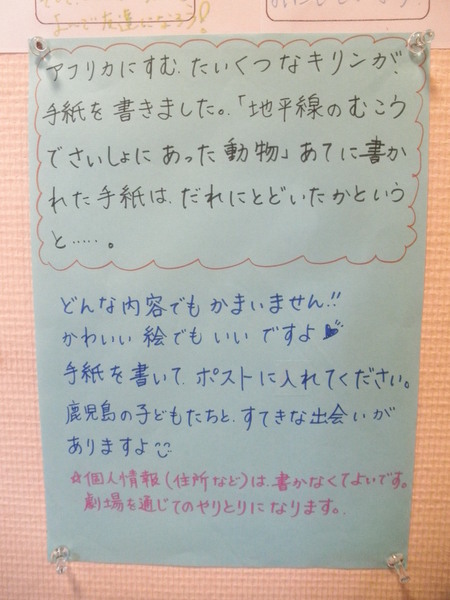 アフリカにすむ、たいくつなキリンが、
手紙を書きました。「地平線のむこう
でさいしょに あった動物」あてに書か
れた手紙は、だれにとどいたかという
と……。
どんな内容でも かまいません!!
かわいい 絵でも いい ですよ
手紙を書いて、ポストに入れてください。
鹿児島の子どもたちと、すてきな出会いが
ありますよ
☆個人情報(住所など)は、書かなくてよいです。
劇場を通じてのやりとりになります。